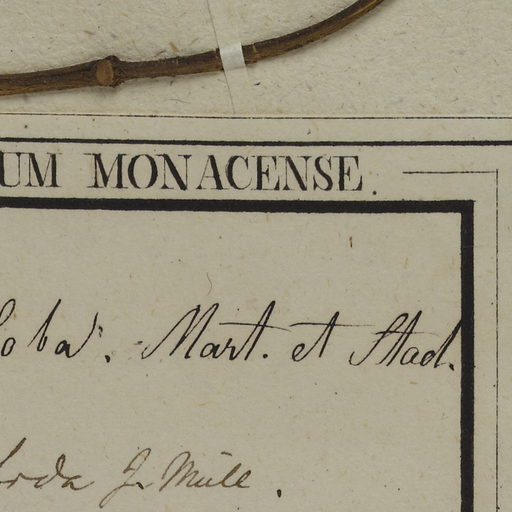 UM MONACENSE.
loba. Mart. et Stad.
J. Müll.